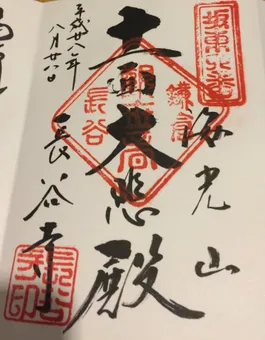 坂東四番
海光山
鎌倉
十一面大悲殿
長谷
長谷寺
長谷寺印
平成廿八年
八月廿日